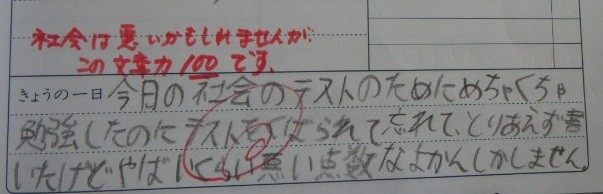 社会は悪いかもしれませんが、
この文章力100です。
きょうの一日 今月の社会のテストのためにめちゃくちゃ
勉強したのにテストをくばられて忘れて、とりあえず書
いたけどやばいくらい悪い点数なよかんしかしません。